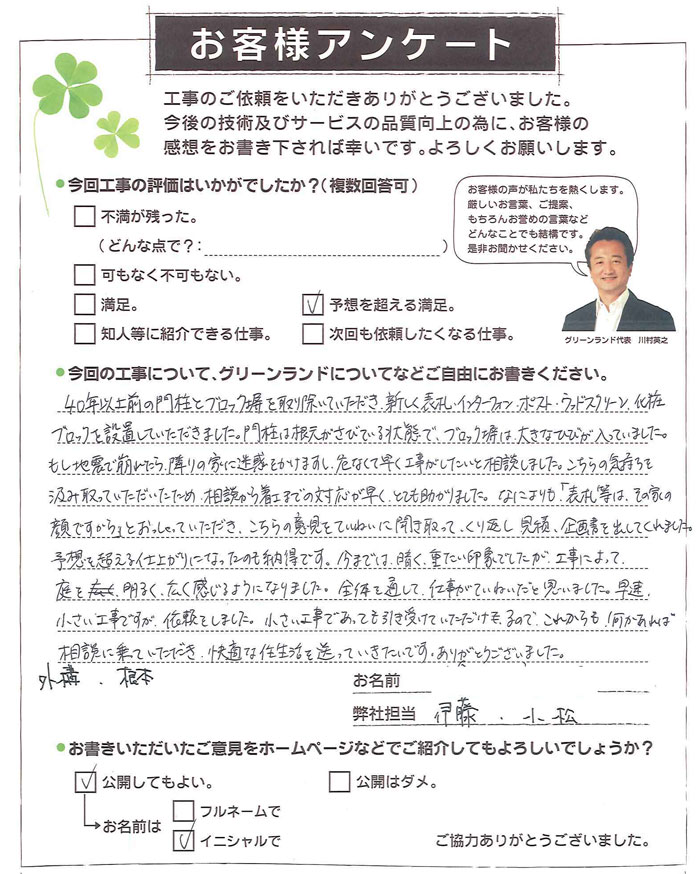 お客様アンケート
工事のご依頼をいただきありがとうございました。
今後の技術及びサービスの品質向上の為に、お客様の
感想をお書き下されば幸いです。よろしくお願いします。
●今回工事の評価はいかがでしたか？（複数回答可）
□不満が残った。
（どんな点で？：　　）
□可もなく不可もない。
□満足。
☑予想を超える満足。
□知人等に紹介できる仕事。
□次回も依頼したくなる仕事。
お客様の声が私たちを熱くします。
厳しいお言葉、ご提案、
もちろんお誉めの言葉など
どんなことでも結構です。
是非お聞かせください。
グリーンランド代表　川村英之
●今回の工事について、グリーンランドについてなどご自由にお書きください。
40年以上前の門柱とブロック塀を取り除いていただき、新しく表札、インターフォン、ポスト、ウッドスクリーン、化粧
ブロックを設置していただきました。門柱は根元がさびている状態で、ブロック塀は、大きなひびが入っていました。
もし地震で崩れたら、隣りの家に迷惑をかけますし、危なくて早く工事がしたいと相談しました。こちらの気持ちを
汲み取っていただいたため、相談から着工までの対応が早く、とても助かりました。なによりも、「表札等は、その家の
顔ですから」とおっしゃっていただき、こちらの意見をていねいに聞き取って、くり返し見積、企画書を出してくれました。
予想を超える仕上がりになったのも納得です。今までは、暗く、重たい印象でしたが、工事によって、
庭を 明るく、広く感じるようになりました。全体を通して、仕事がていねいだと思いました。早速、
小さい工事ですが、依頼をしました。小さい工事であっても引き受けていただけるので、これからも何かあれば
相談に乗っていただき、快適な住生活を送っていきたいです。ありがとうございました。
外構、根本
お名前
弊社担当　伊藤、小松
●お書きいただいたご意見をホームページなどでご紹介してもよろしいでしょうか？
☑公開してもよい。
□公開はダメ。
→お名前は
□フルネームで
☑イニシャルで
ご協力ありがとうございました。